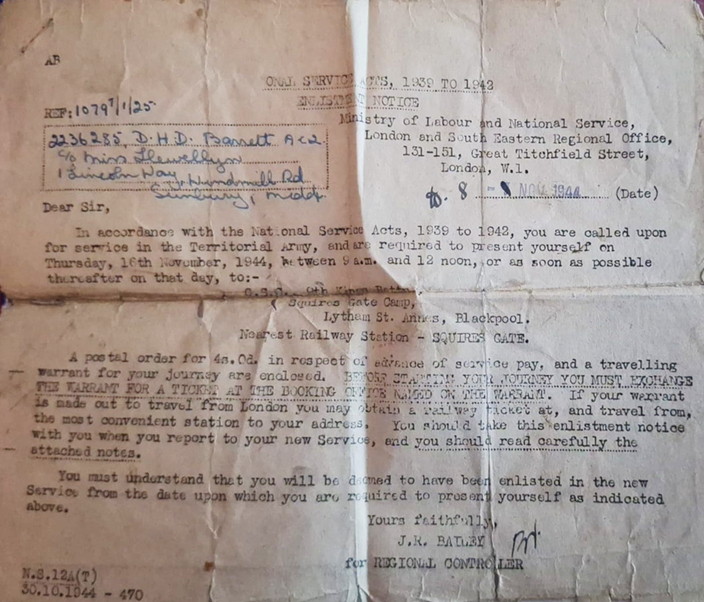 AB
ONAL SERVICE ACTS, 1939 TO 1942
ENLISTMENT NOTICE
REF: 10797/1/25
Ministry of Labour and National Service,
London and South Eastern Regional Office,
131-151, Great Titchfield Street,
London, W.1.
8 NOV 1944 (Date)
2236285, D.H.D. Barrett AC2.
c/o Miss Llewellyn
1 Lincoln Way, Windmill Rd
Sunbury, Middx
Dear Sir,
In accordance with the National Service Acts, 1939 to 1942, you are called upon
for service in the Territorial Army, and are required to present yourself on
Thursday, 16th November, 1944, between 9 a.m. and 12 noon, or as soon as possible
thereafter on that day, to:-
9th
Squires Gate Camp,
Lytham St. Annes, Blackpool.
Nearest Railway Station - SQUIRES GATE.
A postal order for 4s.0d. in respect of advance of service pay, and a travelling
warrant for your journey are enclosed. BEFORE STARTING YOUR JOURNEY YOU MUST EXCHANGE
THE WARRANT FOR A TICKET AT THE BOOKING OFFICE NAMED ON THE WARRANT. If your warrant
is made out to travel from London you may obtain a railway ticket at, and travel from,
the most convenient station to your address. You should take this enlistment notice
with you when you report to your new Service, and you should read carefully the
attached notes.
You must understand that you will be deemed to have been enlisted in the new
Service from the date upon which you are required to present yourself as indicated
above.
Yours faithfully,
J.R. BAILEY
for REGIONAL CONTROLLER
N.S.12A(T)
30.10.1944 - 470